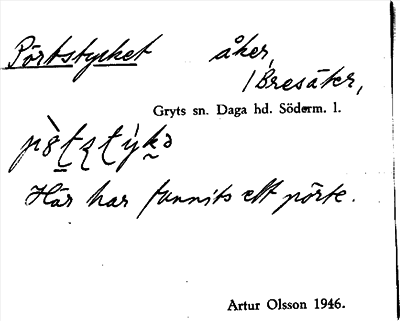 Pörtstycket åker,
/Bresäter,
Gryts sn. Daga hd. Söderm. l.
Här har funnits ett pörte.
Artur Olsson 1946.